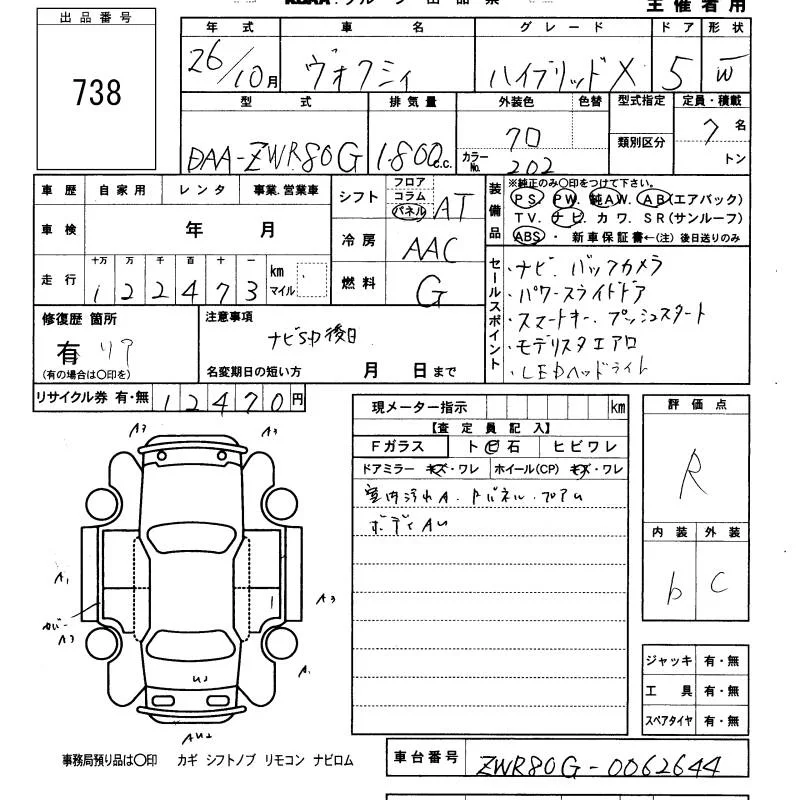 出品番号
738
主催者用
年式 車名 グレード ドア 形状
26/10月 ヴォクシィ ハイブリッドX 5 W
型式 排気量 外装色 色替 型式指定 定員・積載
DAA-ZWR80G 1.800c.c. クロ 類別区分 7名
カラーNo. 202 トン
車歴 自家用 レンタ 事業.営業車
車検 年 月
走行 十万 万 千 百 十 一 km マイル
122473
シフト フロア コラム パネル AT
冷房 AAC
燃料 G
装備品
※純正のみ〇印をつけて下さい。
PS. PW. 純AW. AB(エアバック)
TV. ナビ. カワ. SR(サンルーフ)
ABS・ 新車保証書←(注) 後日送りのみ
セールスポイント
・ナビ. バックカメラ
・パワースライドドア
・スマートキー. プッシュスタート
・モデリスタエアロ
・LEDヘッドライト
修復歴 箇所
有 リア
(有の場合は〇印を)
注意事項
ナビSD後日
名変期日の短い方 月 日まで
リサイクル券 有・無 12470円
現メーター指示 km
【査定員記入】
Fガラス ト ビ 石 ヒビワレ
ドアミラー キズ・ワレ ホイール(CP) キズ・ワレ
室内汚れA.
ボディAU
評価点
R
内装 外装
b C
A2 A3
A1
A3
カバー
A3
A1
UJ
AU2
ジャッキ 有・無
工具 有・無
スペアタイヤ 有・無
事務局預り品は〇印 カギ シフトノブ リモコン ナビロム
車台番号 ZWR80G-0062644